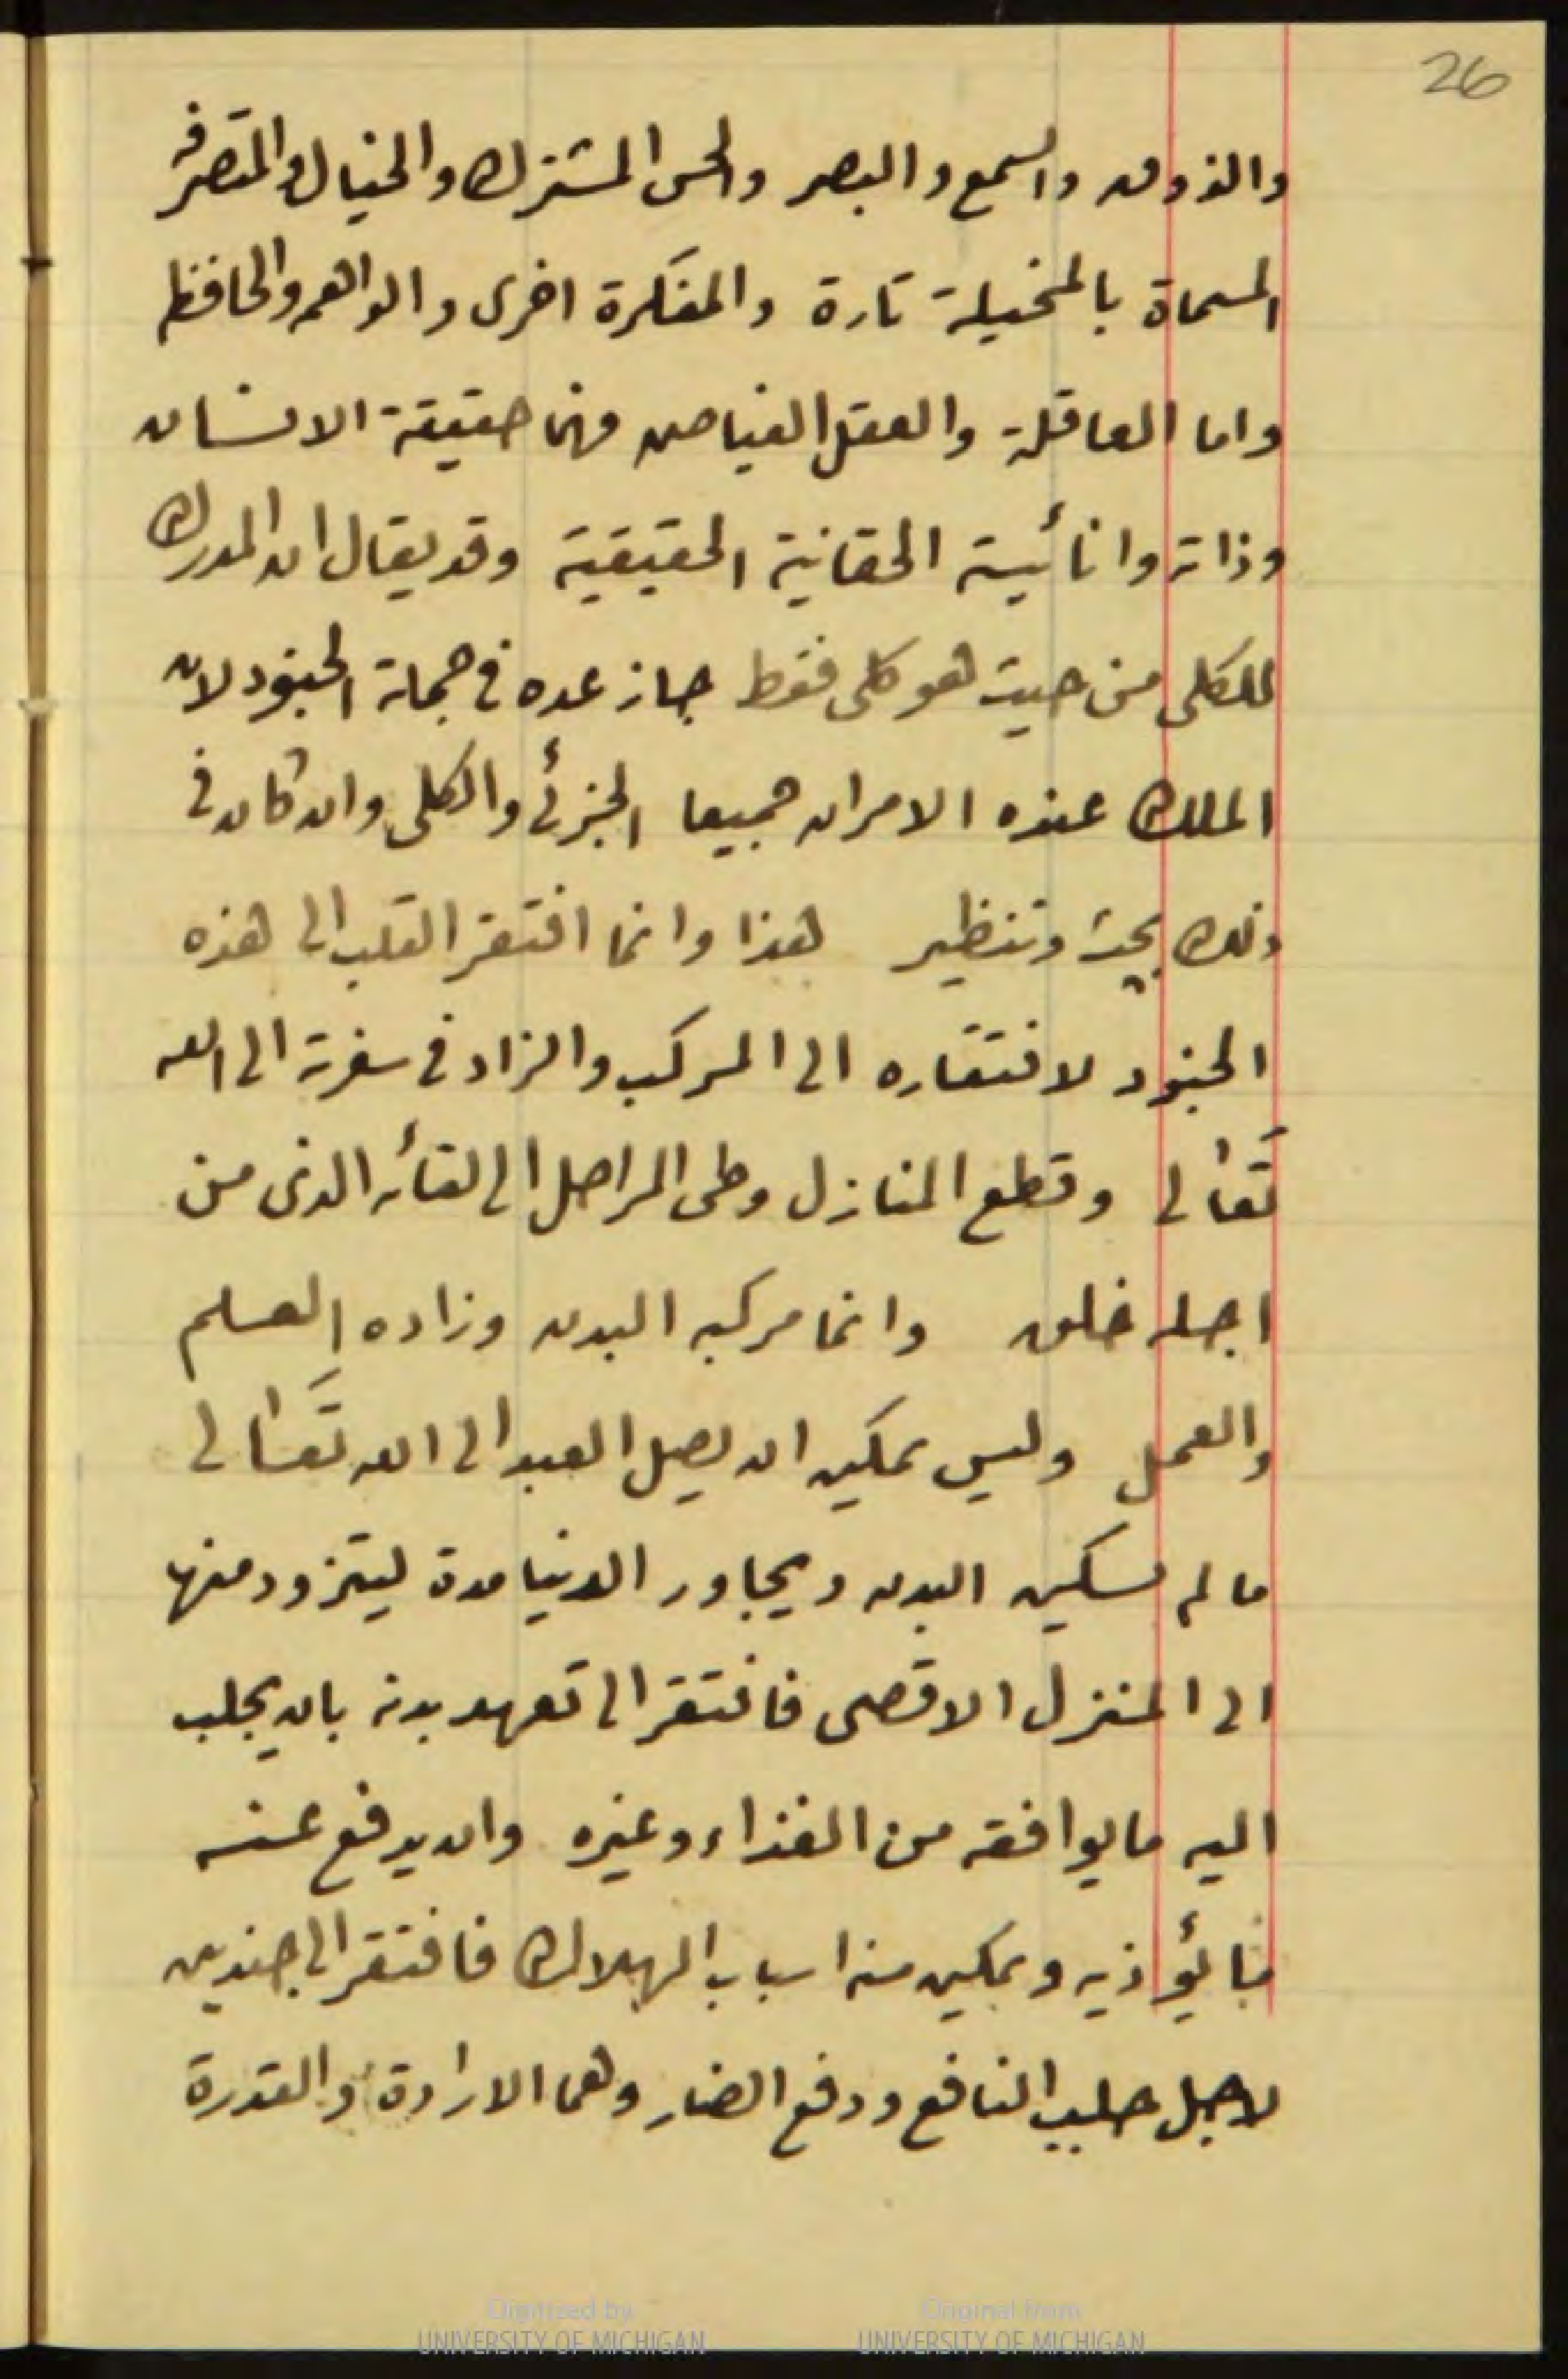 26
والذوق والسمع والبصر والحس المشترك والخيال والمتصرفة
المسماة بالمخيلة تارة والمفكرة اخرى والواهمة والحافظة
واما العاقلة والعقل الفياض فهما حقيقة الانسان
وذاته وانائيته الحقانية الحقيقية وقد يقال ان المدرك
للكلى من حيث هو كلى فقط جاز عده في جملة الجنود لان
الملك عنده الامران جميعا الجزئى والكلى وان كان في
ذلك بحث وتنظير هذا وانما افتقر القلب الى هذه
الجنود لافتقاره الى المركب والزاد في سفرته الى الله
تعالى وقطع المنازل وطى المراحل الى لقائه الذى من
اجله خلق وانما مركبه البدن وزاده العلم
والعمل وليس يمكن ان يصل العبد الى الله تعالى
ما لم يسكن البدن ويجاور الدنيا مدة ليتزود منها
الى المنزل الاقصى فافتقر الى تعهد بدنه بان يجلب
اليه ما يوافقه من الغذاء وغيره وان يدفع عنه
ما يؤذيه ويمكن منه اسباب الهلاك فافتقر الى جندين
لاجل جلب النافع ودفع الضار وهما الارادة والقدرة
Digitized by
UNIVERSITY OF MICHIGAN
Original from
UNIVERSITY OF MICHIGAN